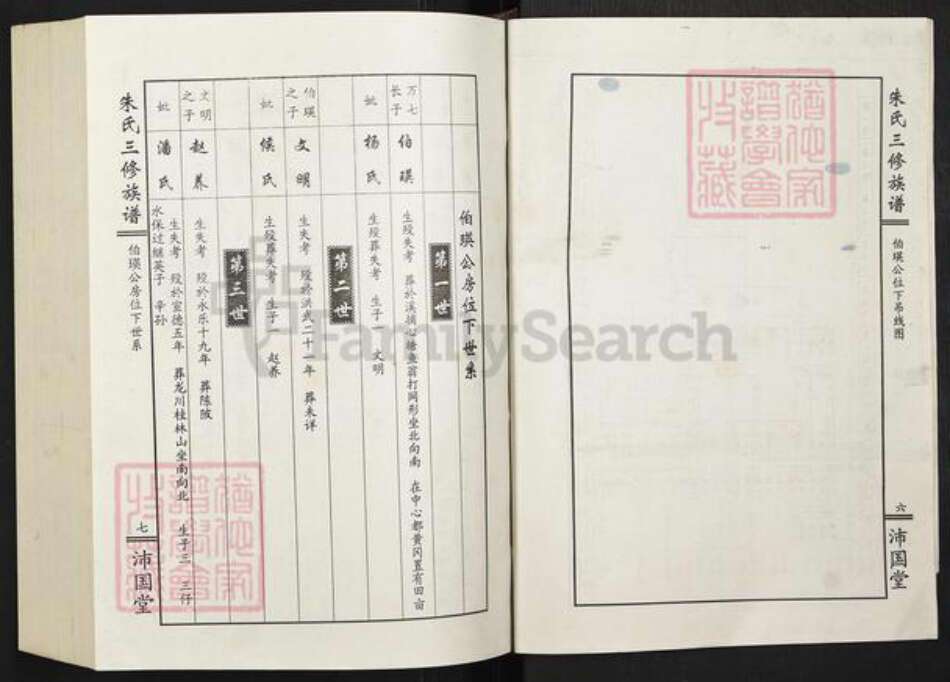 朱氏三修族谱
伯瑛公位下吊线图
六
沛国堂
伯瑛公房位下世系
第一世
万七长子
伯瑛
生殁失考 葬於溪摛心塘鱼翁打网形坐北向南 在中心都黄冈置有田亩
妣
杨氏
生殁葬失考 生子一 文明
第二世
伯瑛之子
文明
生失考 殁於洪武二十一年 葬未详
妣
侯氏
生殁葬失考 生子一 赵养
第三世
文明之子
赵养
生失考 殁於永乐十九年 葬陈陂
妣
潘氏
生失考 殁於宣德五年 葬龙川桂林山坐南向北 生子三 三仔
水保过继英子 辛孙
朱氏三修族谱
伯瑛公房位下世系
七
沛国堂
FamilySearch